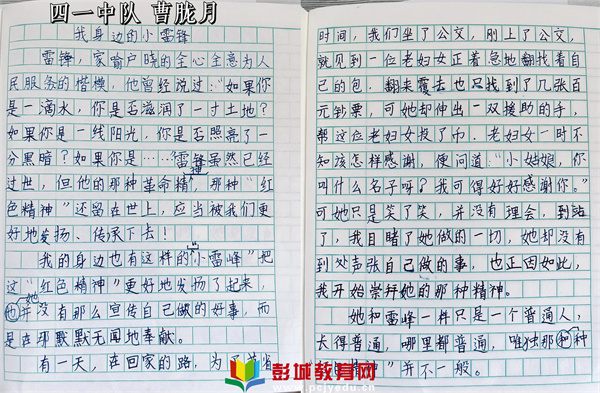 四一中队 曹胧月
我身边的小雷锋
雷锋，家喻户晓的全心全意为人
民服务的楷模，他曾经说过：“如果你
是一滴水，你是否滋润了一寸土地？
如果你是一线阳光，你是否照亮了一
分黑暗？如果你是……”雷锋虽然已经
过世，但他的那种革命精神，那种“红
色精神”还留在世上，应当被我们更
好地发扬、传承下去！
我的身边也有这样的“小雷峰”把
这“红色精神”更好地发扬了起来，
她并没有那么宣传自己做的好事，而
是在那默默无闻地奉献。
有一天，在回家的路，为了节省
时间，我们坐了公交，刚上了公交，
就见到一位老妇女正着急地翻找着自
己的包，翻来覆去也只找到了几张百
元钞票，可她却伸出一双援助的手，
帮这位老妇女投了币、老妇女一时不
知该怎样感谢，便问道：“小姑娘，你
叫什么名子呀？我可得好好感谢你。”
可她只是笑了笑，并没有理会，到站
了，我目睹了她做的一切，她却没有
到处声张自己做的事，也正因如此，
我开始崇拜她的那种精神。
她和雷峰一件只是一个普通人，
长得普通，哪里都普通，唯独那种
”并不一般。
彭城教育网
www.pcjyedu.cn